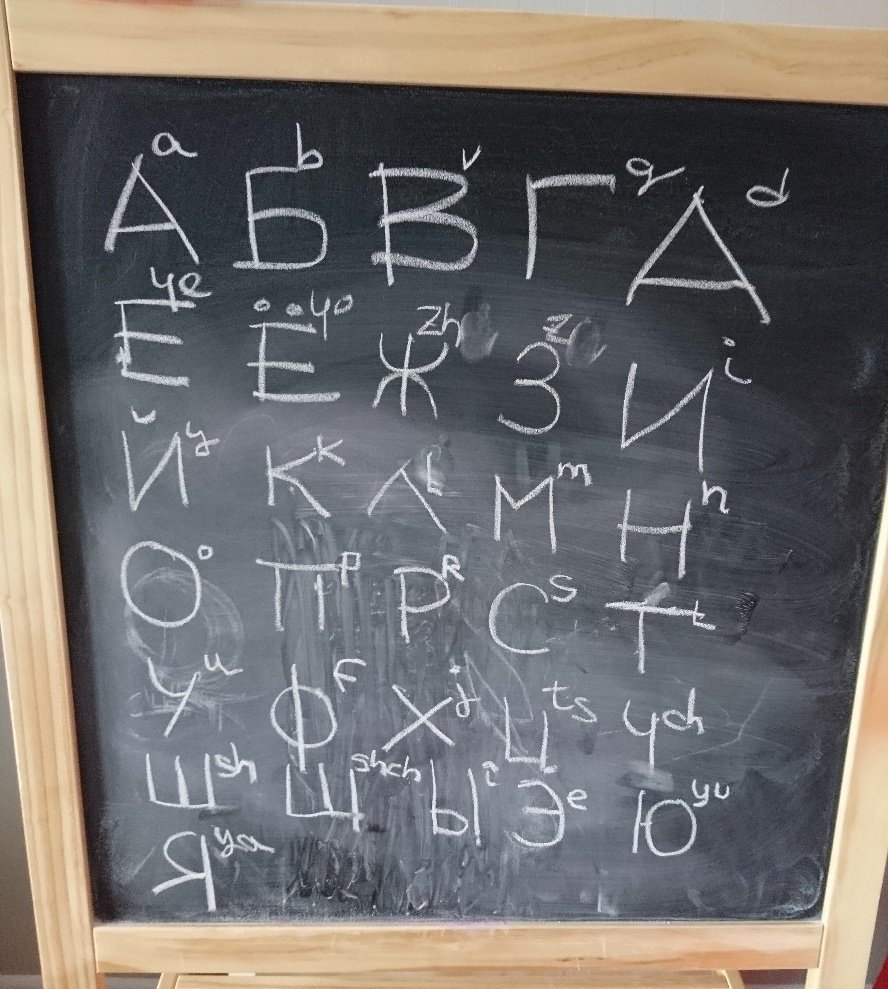 А a Б b В v Г g Д d
Е ye Ё yo Ж zh З z И i
Й y К k Л L М m Н n
О o П p Р R С s Т t
У u Ф F Х j Ц ts Ч ch
Ш sh Щ shch Ы Э e Ю yu
Я ya